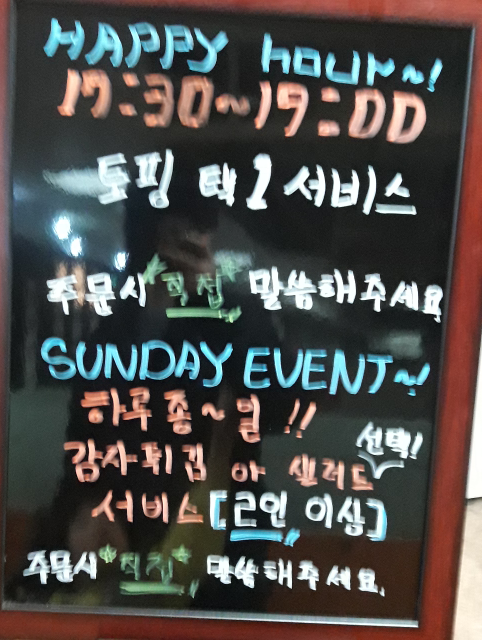 HAPPY hour~!
17:30~19:00
토핑 택1 서비스
주문시 *직접* 말씀해주세요
SUNDAY EVENT~!
하루종~일 !!
감자튀김 or 샐러드 선택!
서비스 [2인 이상]
주문시 *직접* 말씀해주세요.